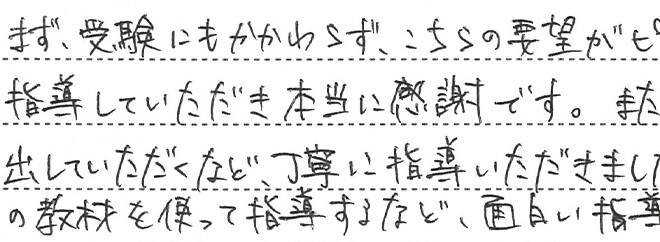 まず、受験にもかかわらず、こちらの要望がも
指導していただき本当に感謝です。また
出していただくなど、丁寧に指導いただきまし
の教材を使って指導するなど、面白い指導